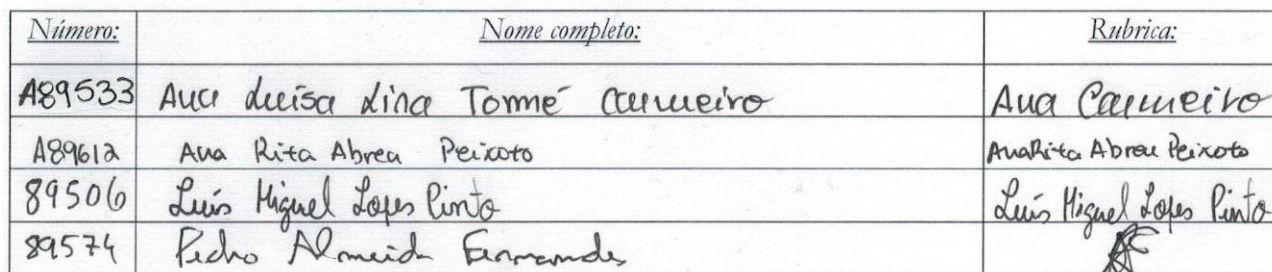 Número: Nome completo: Rubrica:
A89533 Ana Luísa Lina Tomé Carneiro Ana Carneiro
A89612 Ana Rita Abreu Peixoto Ana Rita Abreu Peixoto
89506 Luís Miguel Lopes Pinto Luís Miguel Lopes Pinto
89574 Pedro Almeida Fernandes